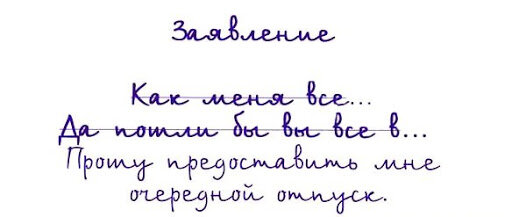 Заявление
Как меня все...
Да пошли бы вы все в...
Прошу предоставить мне
очередной отпуск.